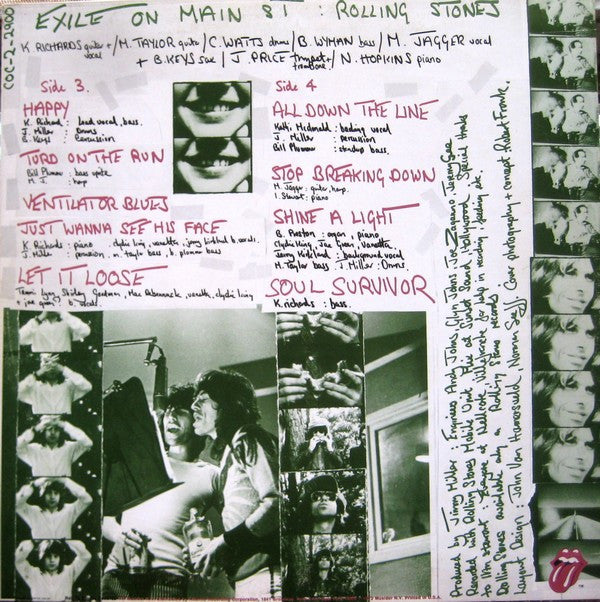 EXILE ON MAIN ST : ROLLING STONES
COC-2-2900
K RICHARDS guitar + / M. TAYLOR guitar / C. WATTS drums / B. WYMAN bass / M. JAGGER vocal
vocal
+ B. KEYS sax / J. PRICE trumpet + / N. HOPKINS piano
trombone
Side 3.
HAPPY
K. Richard : lead vocal, bass.
J. Miller : Drums
B. Keys : percussion
TURD ON THE RUN
Bill Plummer : bass
M. J. : harp
VENTILATOR BLUES
JUST WANNA SEE HIS FACE
K Richards : piano clydie king, vanetta, jerry kirkland b. vocals.
J. Miller : percussion, m. taylor bass, b. plummer bass
LET IT LOOSE
Tammi Lynn, Shirley Goodman, Mac Rebennack, vanetta, clydie king
+ joe green b. vocals
Side 4
ALL DOWN THE LINE
Kathi Mcdonald : backing vocal
J. Miller : percussion
Bill Plummer : standup bass.
STOP BREAKING DOWN
M. Jagger : guitar, harp.
I. Stewart : piano
SHINE A LIGHT
B. Preston : organ, piano
Clydie King, Joe Green, Vanetta,
Jerry Kirkland : background vocal
M. Taylor bass J. Miller : Drums
SOUL SURVIVOR
K. richards : bass.
Produced by Jimmy Miller : Engineers Andy Johns, Glyn Johns, Joe Zagarino, Jeremy Gee
Recorded with Rolling Stones Mobile Unit. Mix at Sunset Sound, Hollywood. Special thanks
to Ian Stewart : Everyone at Nellcote, Villefranche for help in recording, feeding etc.
Rolling Stones available only on Rolling Stones records
Layout Design : John Van Hamersveld, Norman Seeff : Cover photography + concept Robert Frank.
Printed in U.S.A.